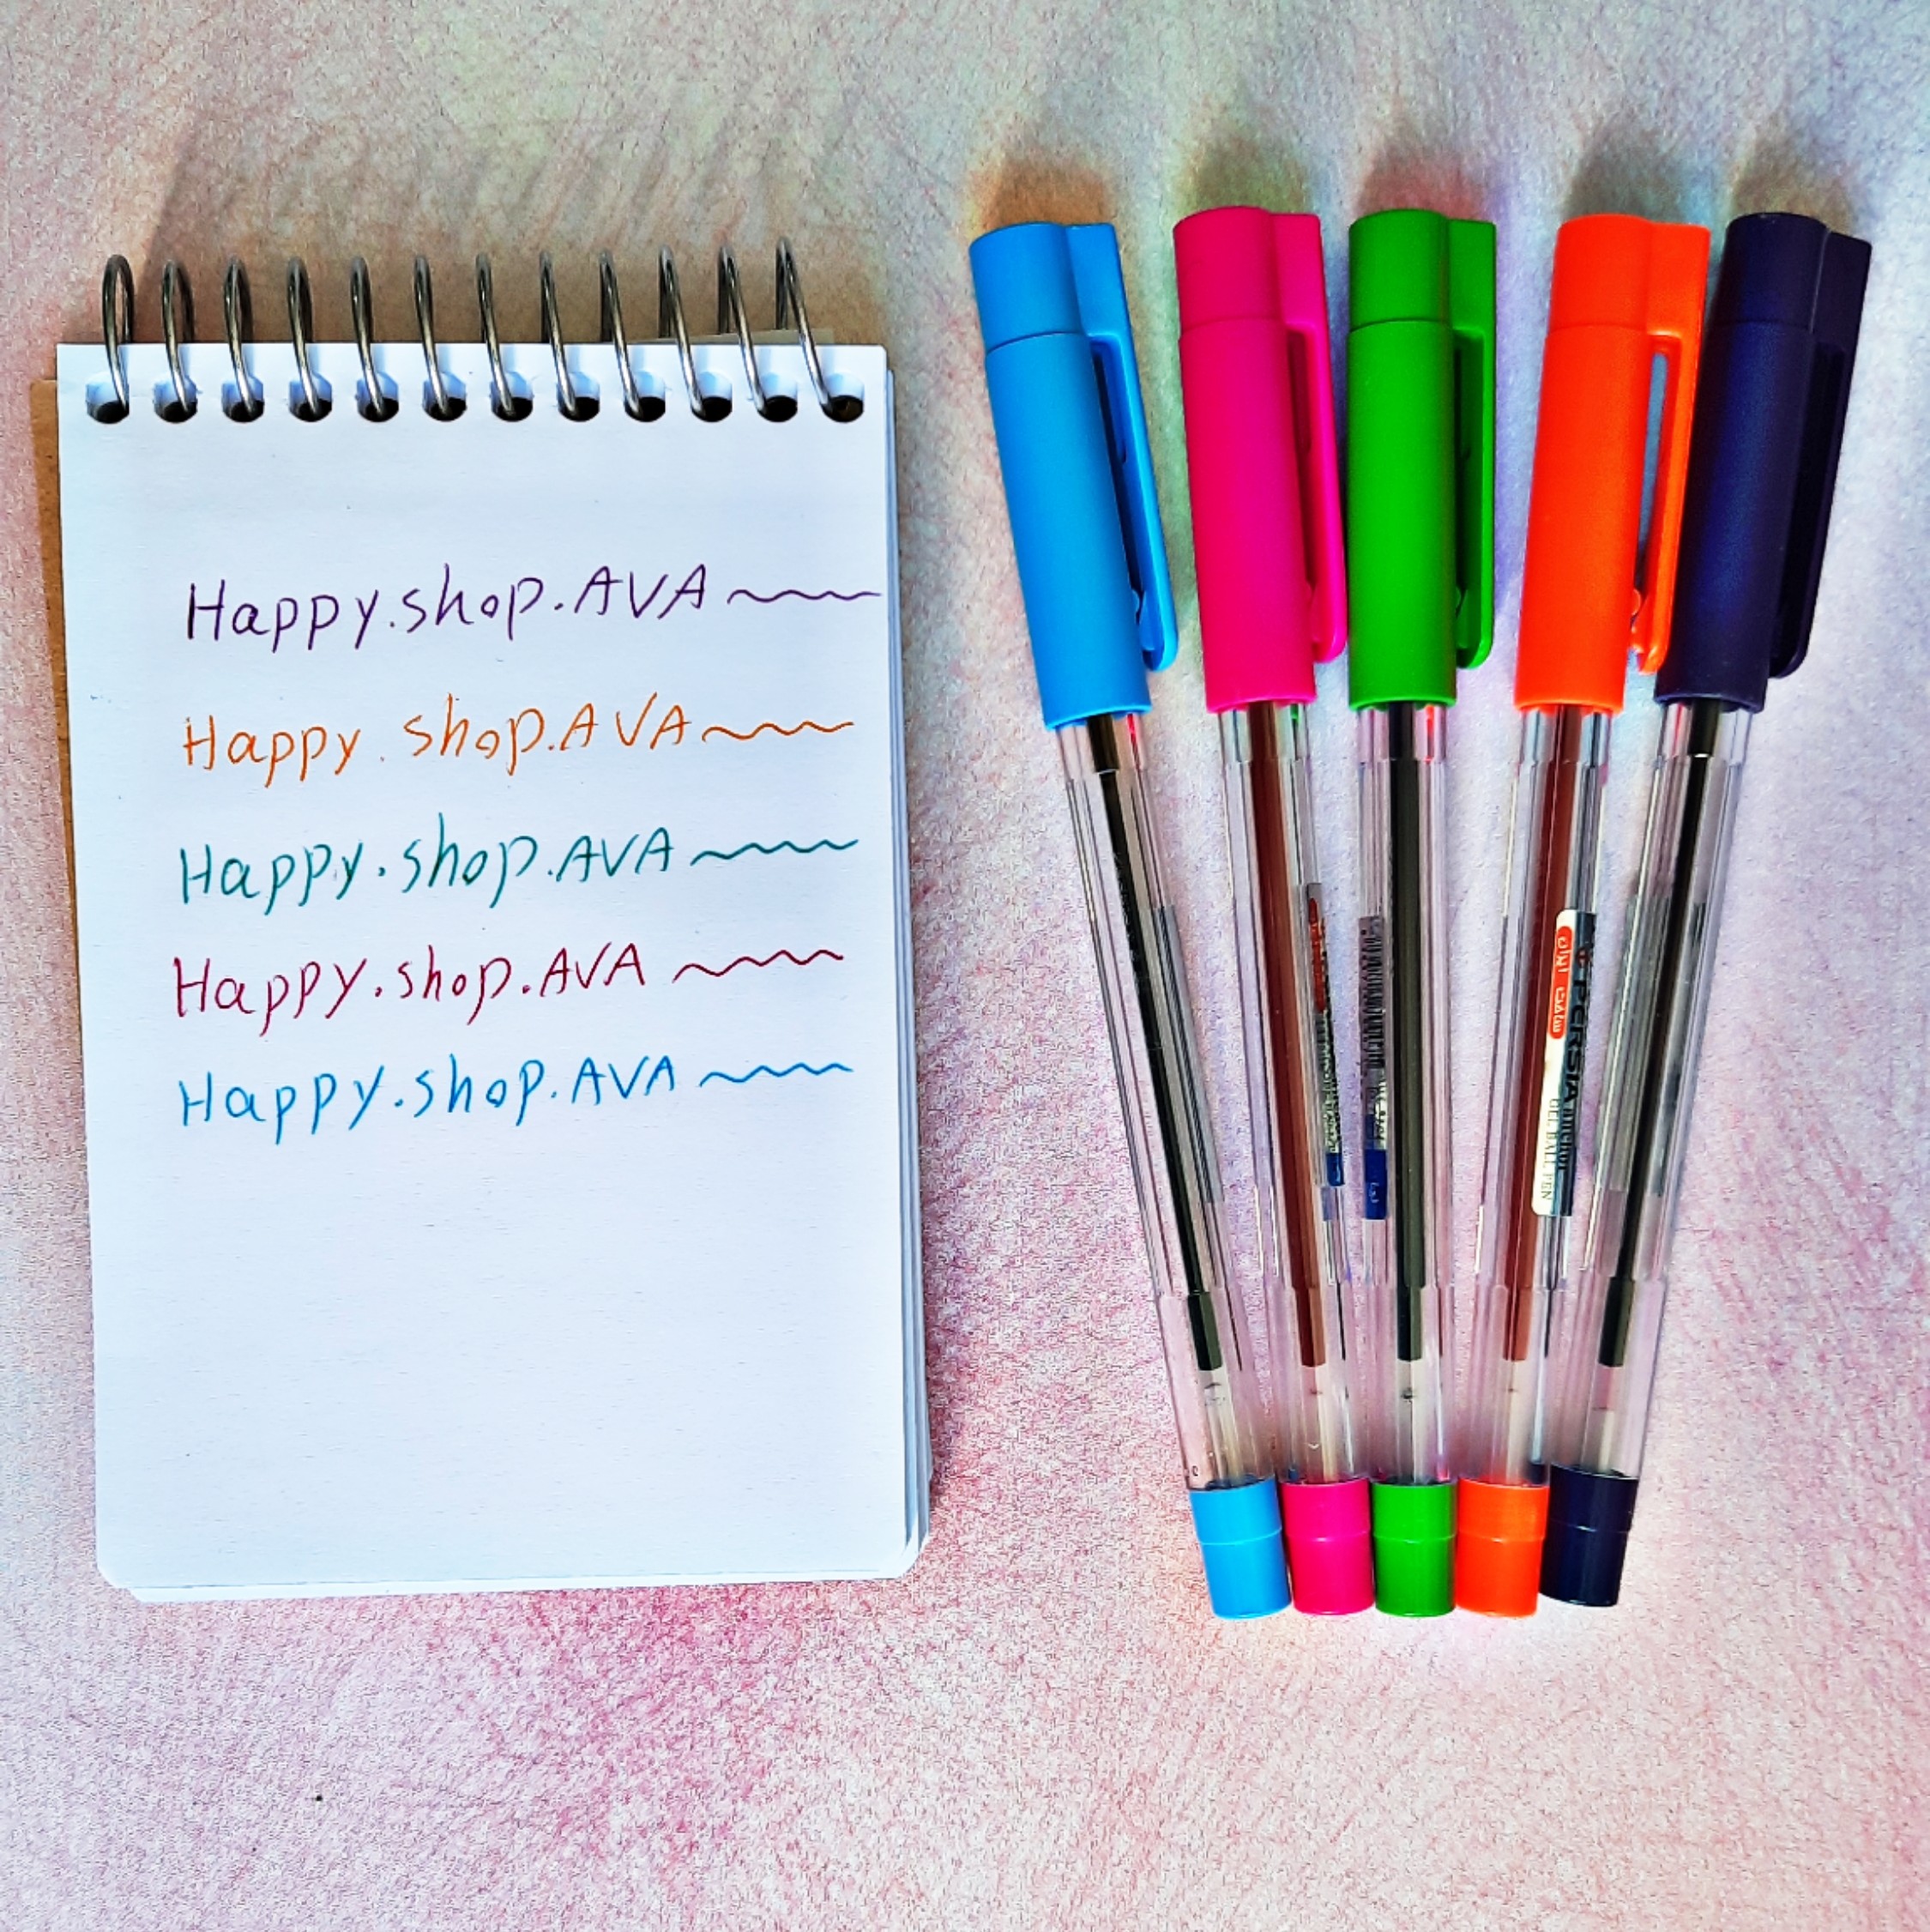 Happy.shop.AVA
Happy.shop.AVA
Happy.shop.AVA
Happy.shop.AVA
Happy.shop.AVA
PERSIA
GEL BALL PEN